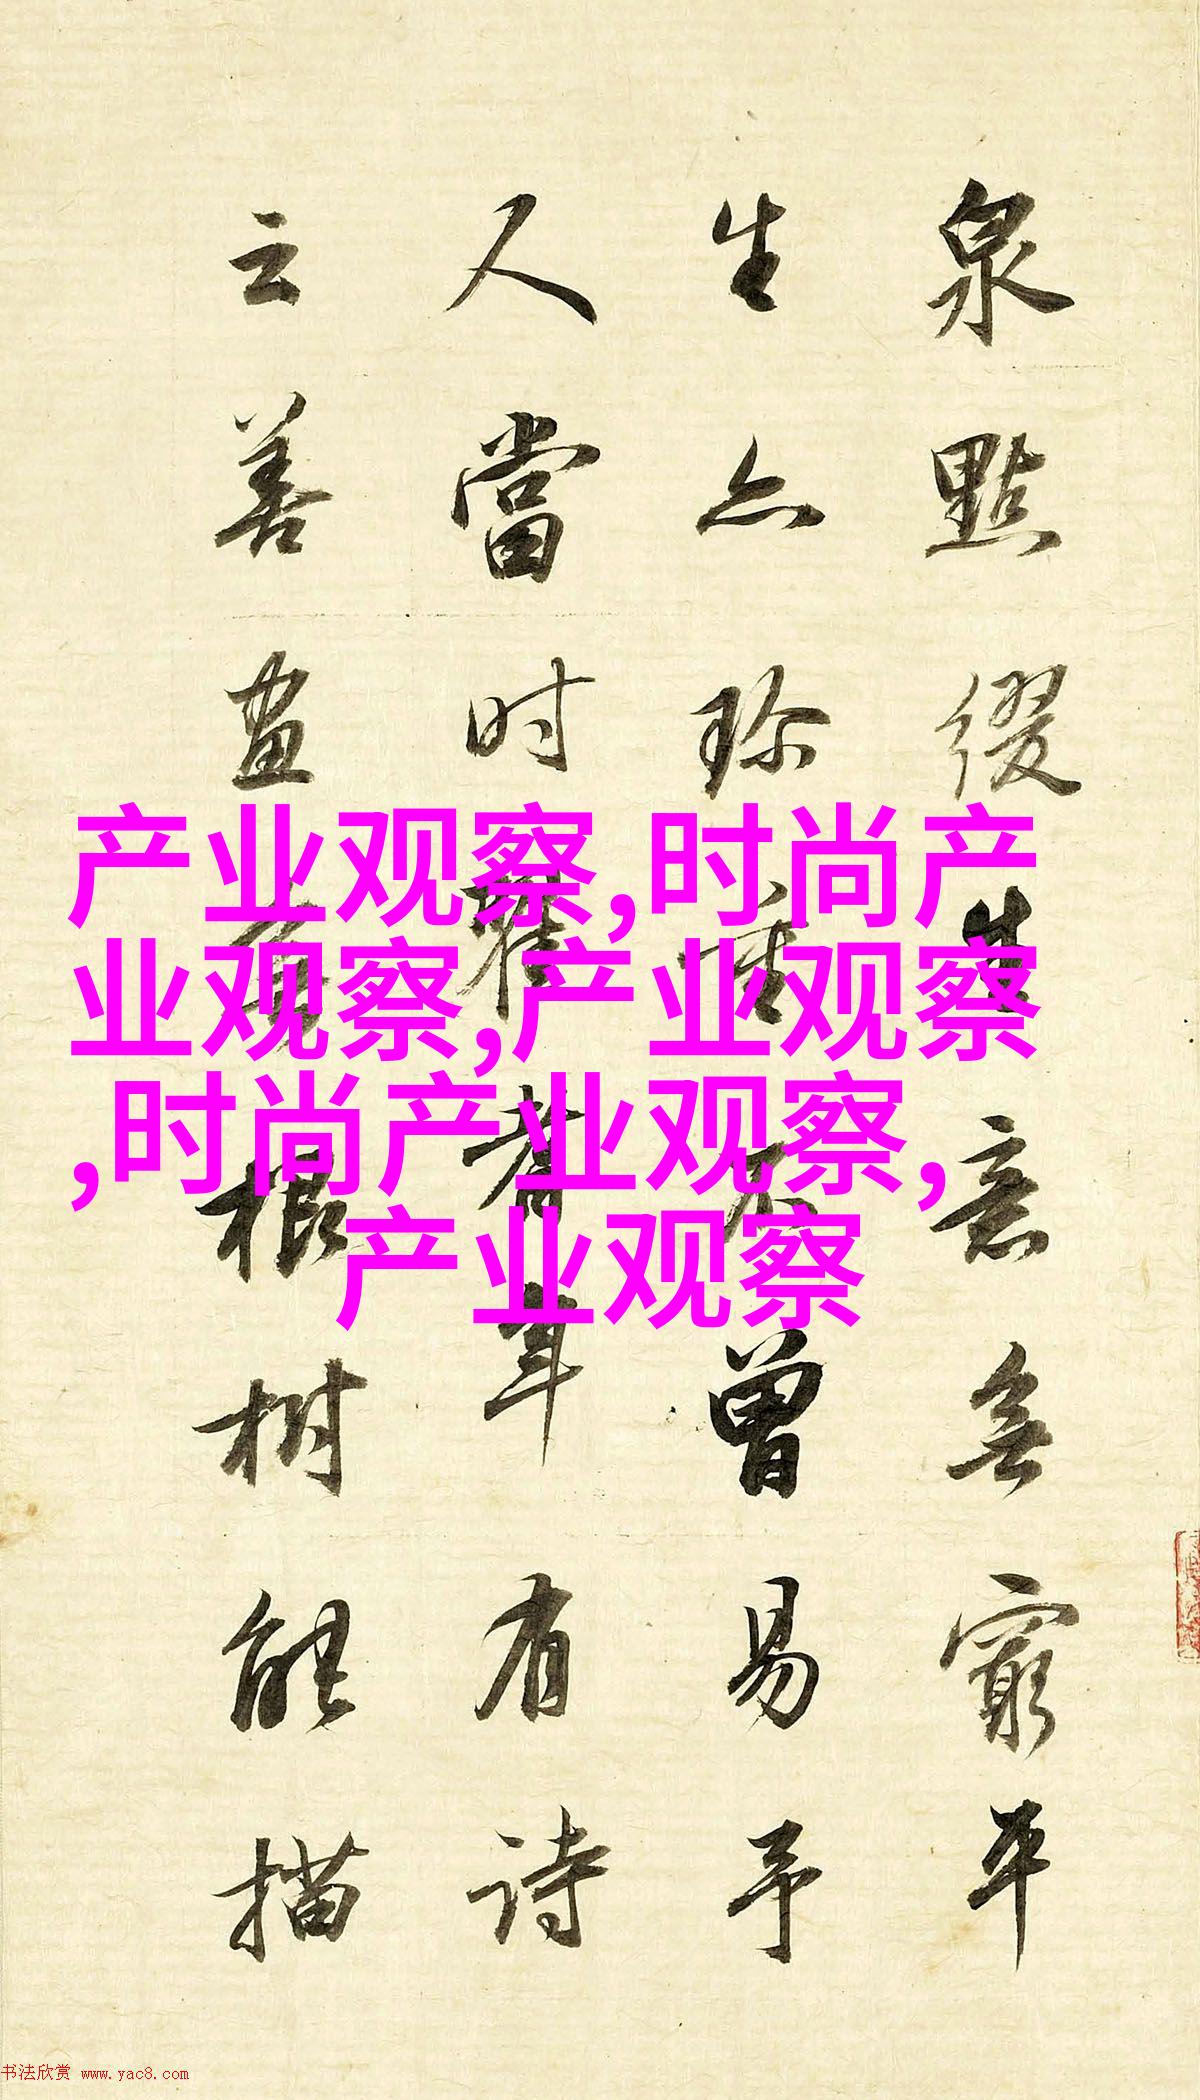 泉點綴生意無窮平
生亦珍重不曾易予
人當时翟耆年有诗
云善画無根树能描
产业观察,时尚产
业观察,产业观察
,时尚产业观察,
产业观察
书法欣赏 www.yac8.com